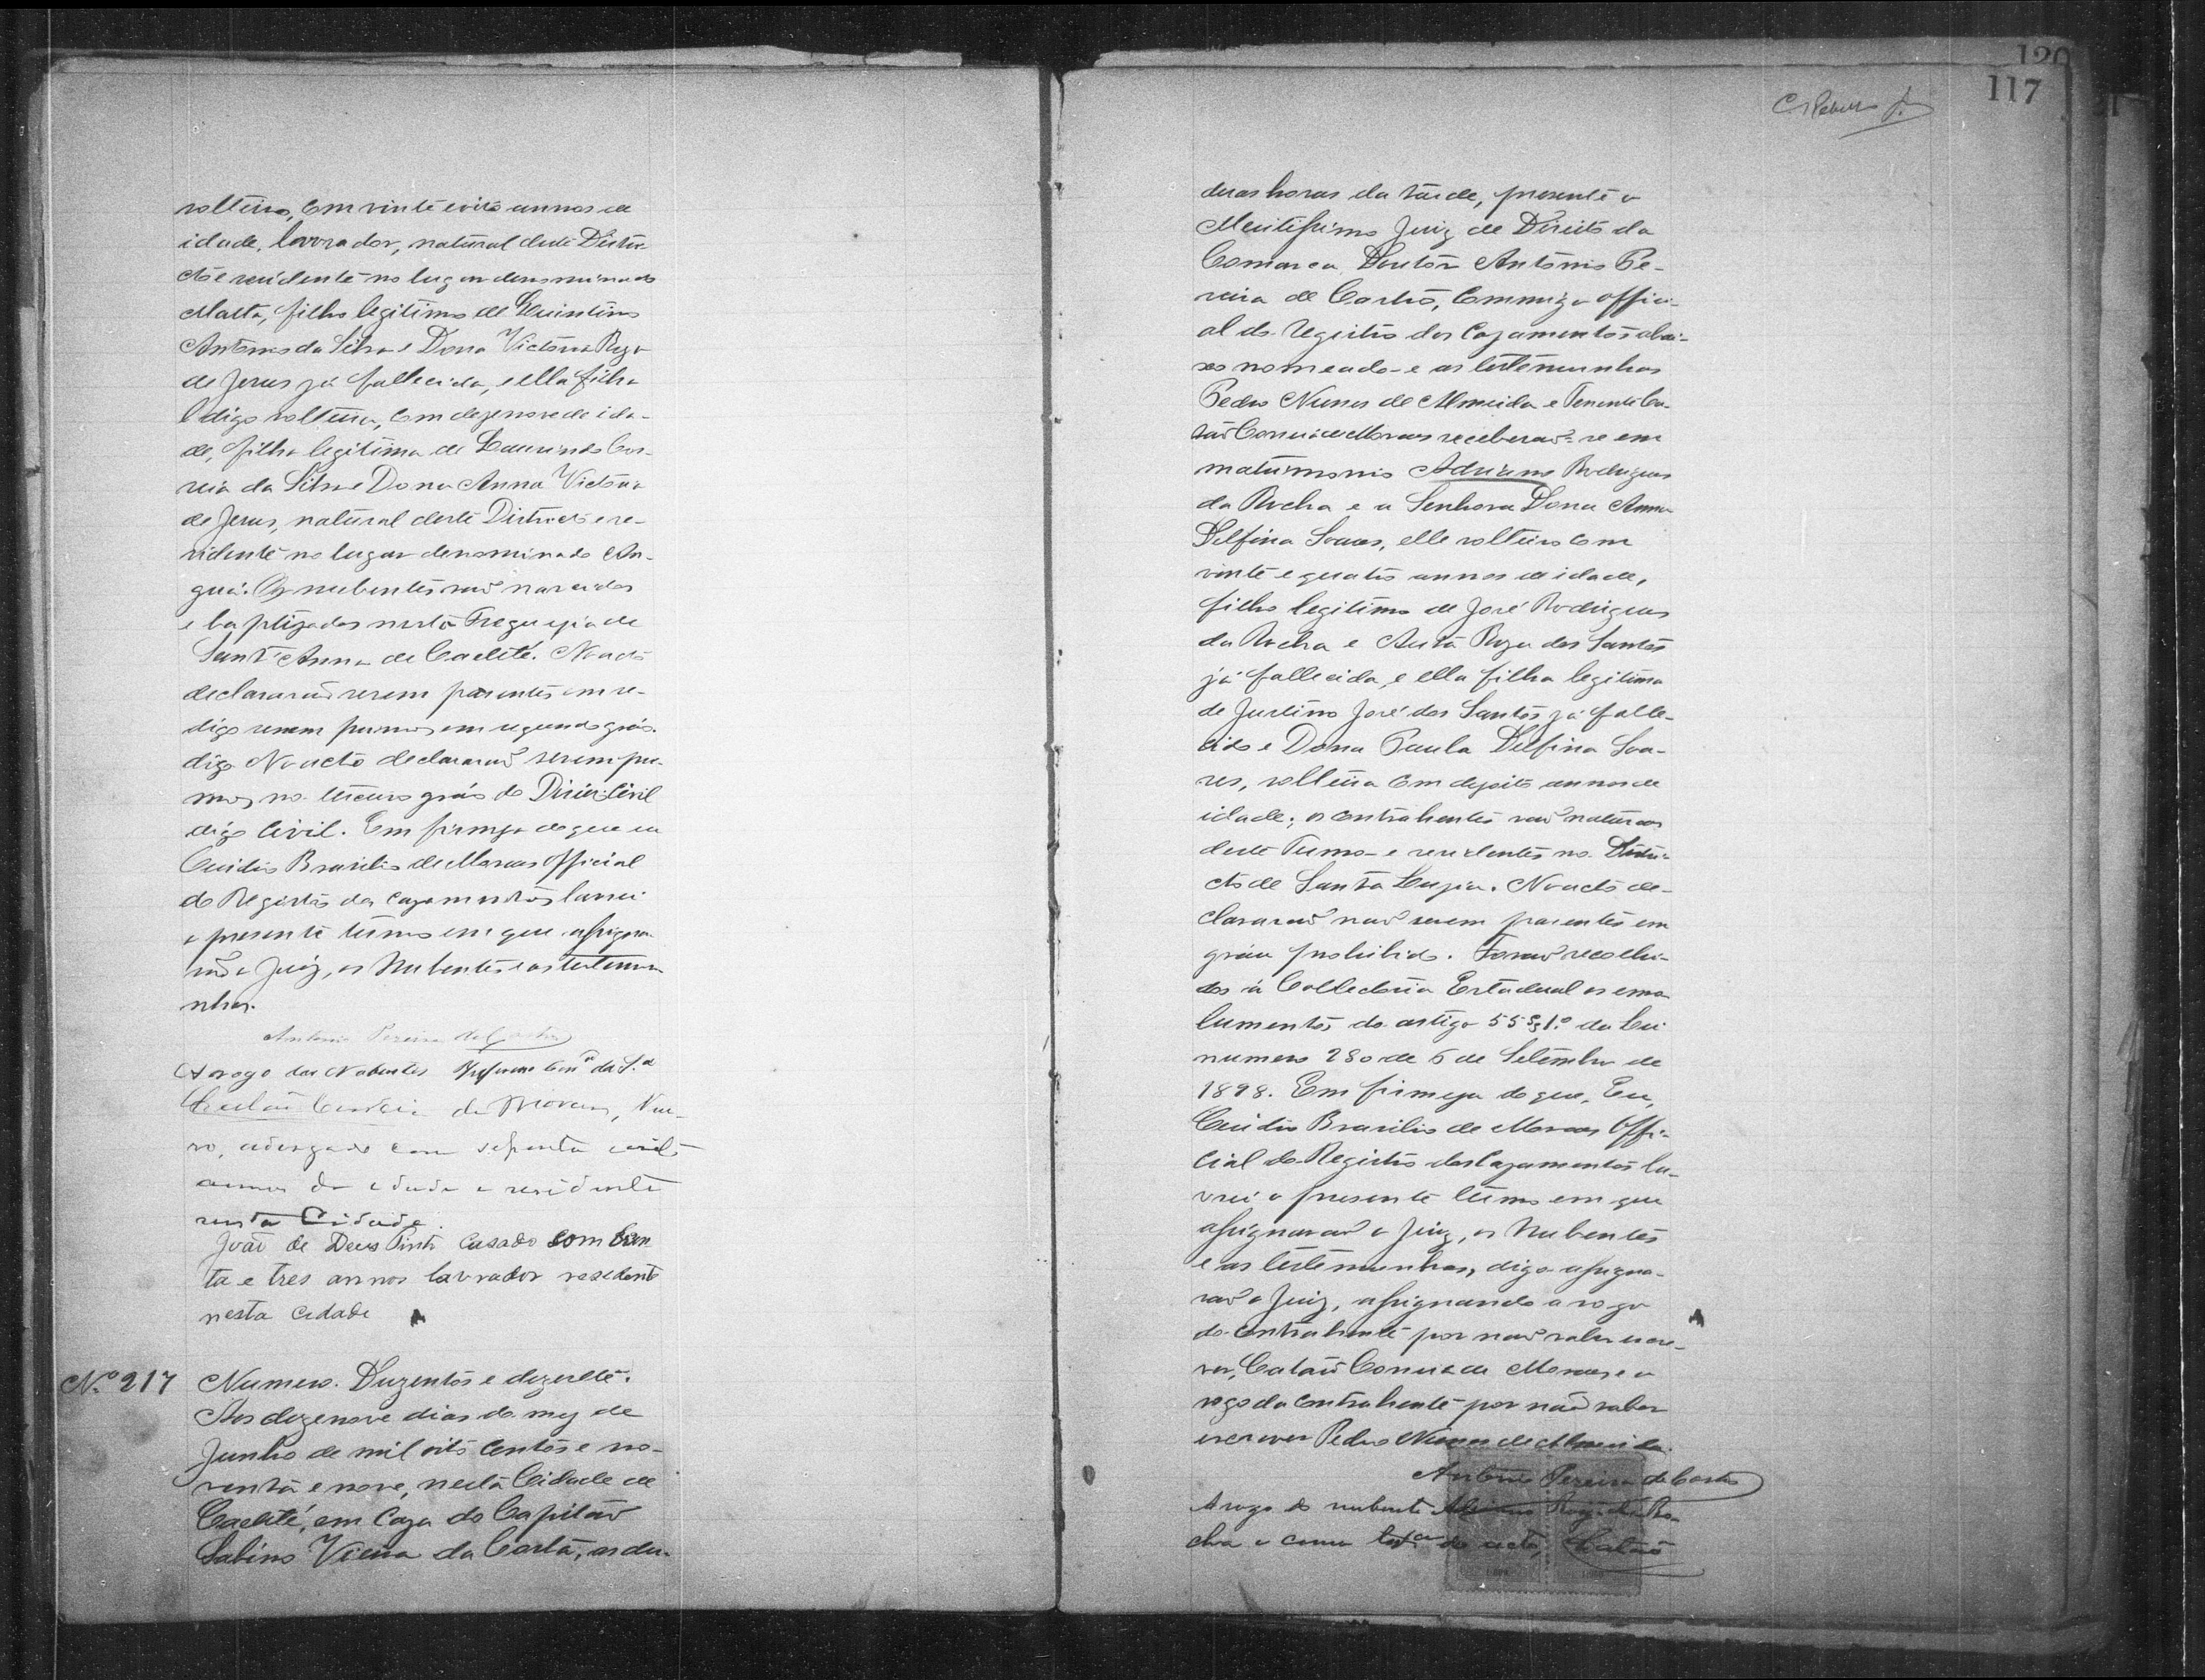 solteiro, com vinte e oito annos de
idade, lavrador, natural deste Distri-
cto e residente no lugar denominado
Matta, filho legitimo de Quintino
Antonio da Silva e Dona Victoria Roza
de Jesus já fallecida, e ella filha
l digo solteira, com dezenove de ida-
de, filha legitima de Laurindo Cor-
reia da Silva e Dona Anna Victoria
de Jesus, natural deste Districto e re-
sidente no lugar denominado An-
guá. Os nubentes saõ nascidos
e baptizados nesta Freguezia de
Sant'Anna de Caeteté. No acto
declararaõ serem parentes em se-
digo serem primos em segundo gráo.
digo No acto declararaõ serem pri-
mos no terceiro gráo do Direi Civil
digo Civil. Em firmeza do que eu
Ovidio Brasilio de Moraes Official
do Registro dos cazamentos lavrei
o presente termo em que assigna-
raõ o Juiz, os Nubentes e as testemu-
nhas.
Antonio Pereira de Castro
A rogo dos Nubentes da S.ª
Catão Correia de Moraes,
com sessenta e oito
annos de edade e residente
nesta Cidade.
João de Deus Pinto casado com trin
ta e tres annos lavrador residente
nesta cidade
N.º 217 Numero. Duzentos e dezesete.
Aos dezenove dias do mez de
Junho de mil oito centos e no-
venta e nove, nesta Cidade de
Caeteté, em caza do Capitaõ
Sabino Vieira da Costa, as du-
117
120
duas horas da tarde, presente o
Meritissimo Juiz de Direito da
Comarca Doutor Antonio Pe-
reira de Castro, Commigo offici-
al do registro dos Cazamentos abai-
xo nomeado e as testemunhas
Pedro Nunes de Almeida e Tenente Ca-
taõ Correia de Moraes receberaõ-se em
matrimonio Adriano Rodrigues
da Rocha e a Senhora Dona Anna
Delfina Soares, elle solteiro com
vinte e quatro annos de idade,
filho legitimo de José Rodrigues
da Rocha e Auta Roza dos Santos
já fallecida, e ella filha legitima
de Justino José dos Santos já falle-
cido e Dona Paula Delfina Soa-
res, solteira com dezoito annos de
idade; os contrahentes saõ naturaes
deste Termo e residentes no Distri-
cto de Santa Luzia. No acto de-
clararaõ naõ serem parentes em
gráu prohibido. Foraõ recolhi-
dos á Collectoria Estadual os emo-
lumentos do artigo 55 § 1.º da Lei
numero 280 de 6 de Setembro de
1898. Em firmeza do que, Eu,
Ovidio Brasilio de Moraes Offi-
cial do Registro dos Cazamentos la-
vrei o presente termo em que
assignaraõ o Juiz, os Nubentes
e as testemunhas, digo assigna-
raõ o Juiz, assignando a rogo
do contrahente por naõ saber escre-
ver, Cataõ Correia de Moraes e a
rogo da contrahente por naõ saber
escrever Pedro Nunes de Almeida.
Antonio Pereira de Castro
A rogo do nubente Adriano Roiz da Ro-
cha e como test.ª do acto, Cataõ